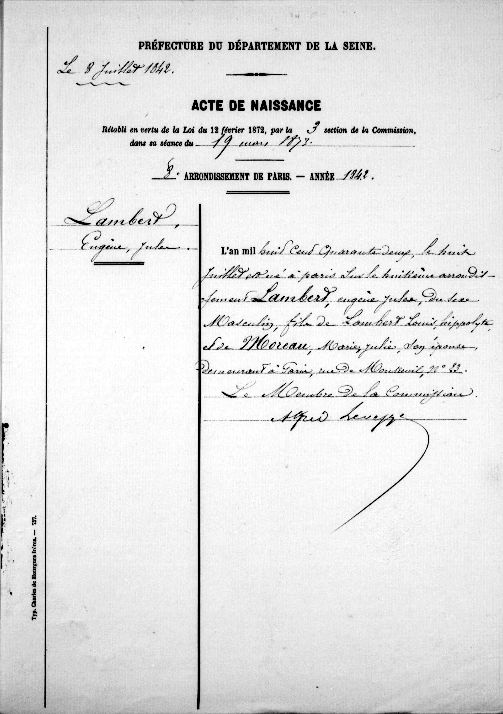 PRÉFECTURE DU DÉPARTEMENT DE LA SEINE.
Le 8 Juillet 1842.
ACTE DE NAISSANCE
Rétabli en vertu de la Loi du 12 février 1872, par la 3 section de la Commission,
dans sa séance du 19 mars 1873.
8e ARRONDISSEMENT DE PARIS. — ANNÉE 1842.
Lambert,
Eugène, Jules.
L'an mil huit Cent Quarante deux, le huit
Juillet est né à paris sur le huitième arrondis-
sement Lambert, eugène Jules, du sexe
Masculin, fils de Lambert Louis, hippolyte,
et de Moreau, Marie, Julie, son épouse,
demeurant à Paris, rue de Montreuil, No 22.
Le Membre de la Commission.
Alfred
Typ. Charles de Mourgues frères. — 727.